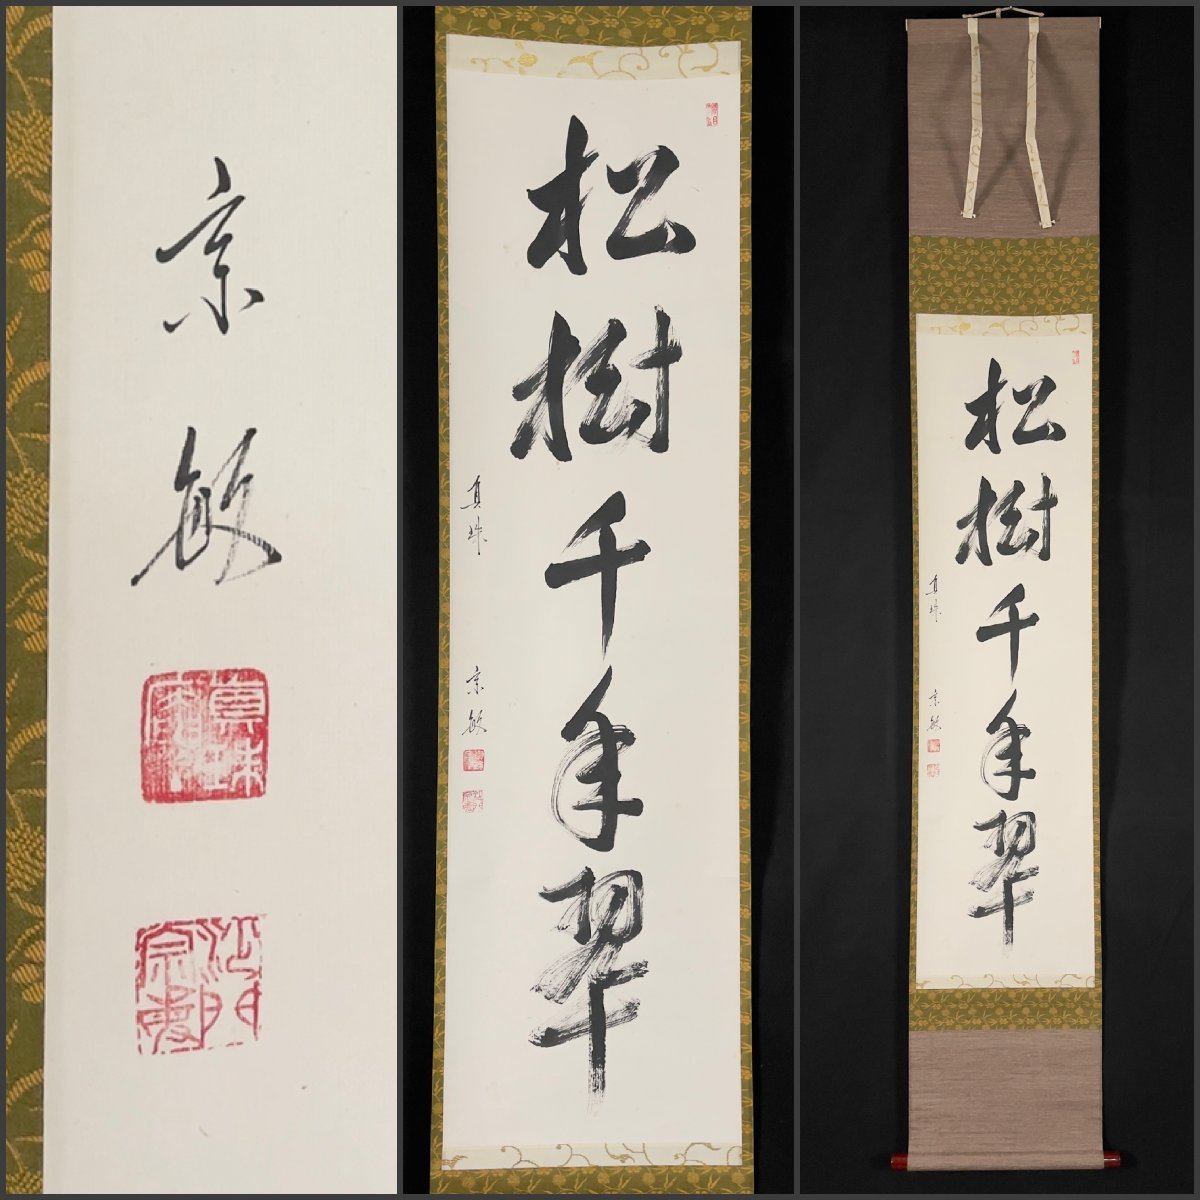 宗
敏
松樹千年翠
真珠
宗敏
松樹千年翠
真珠
宗敏